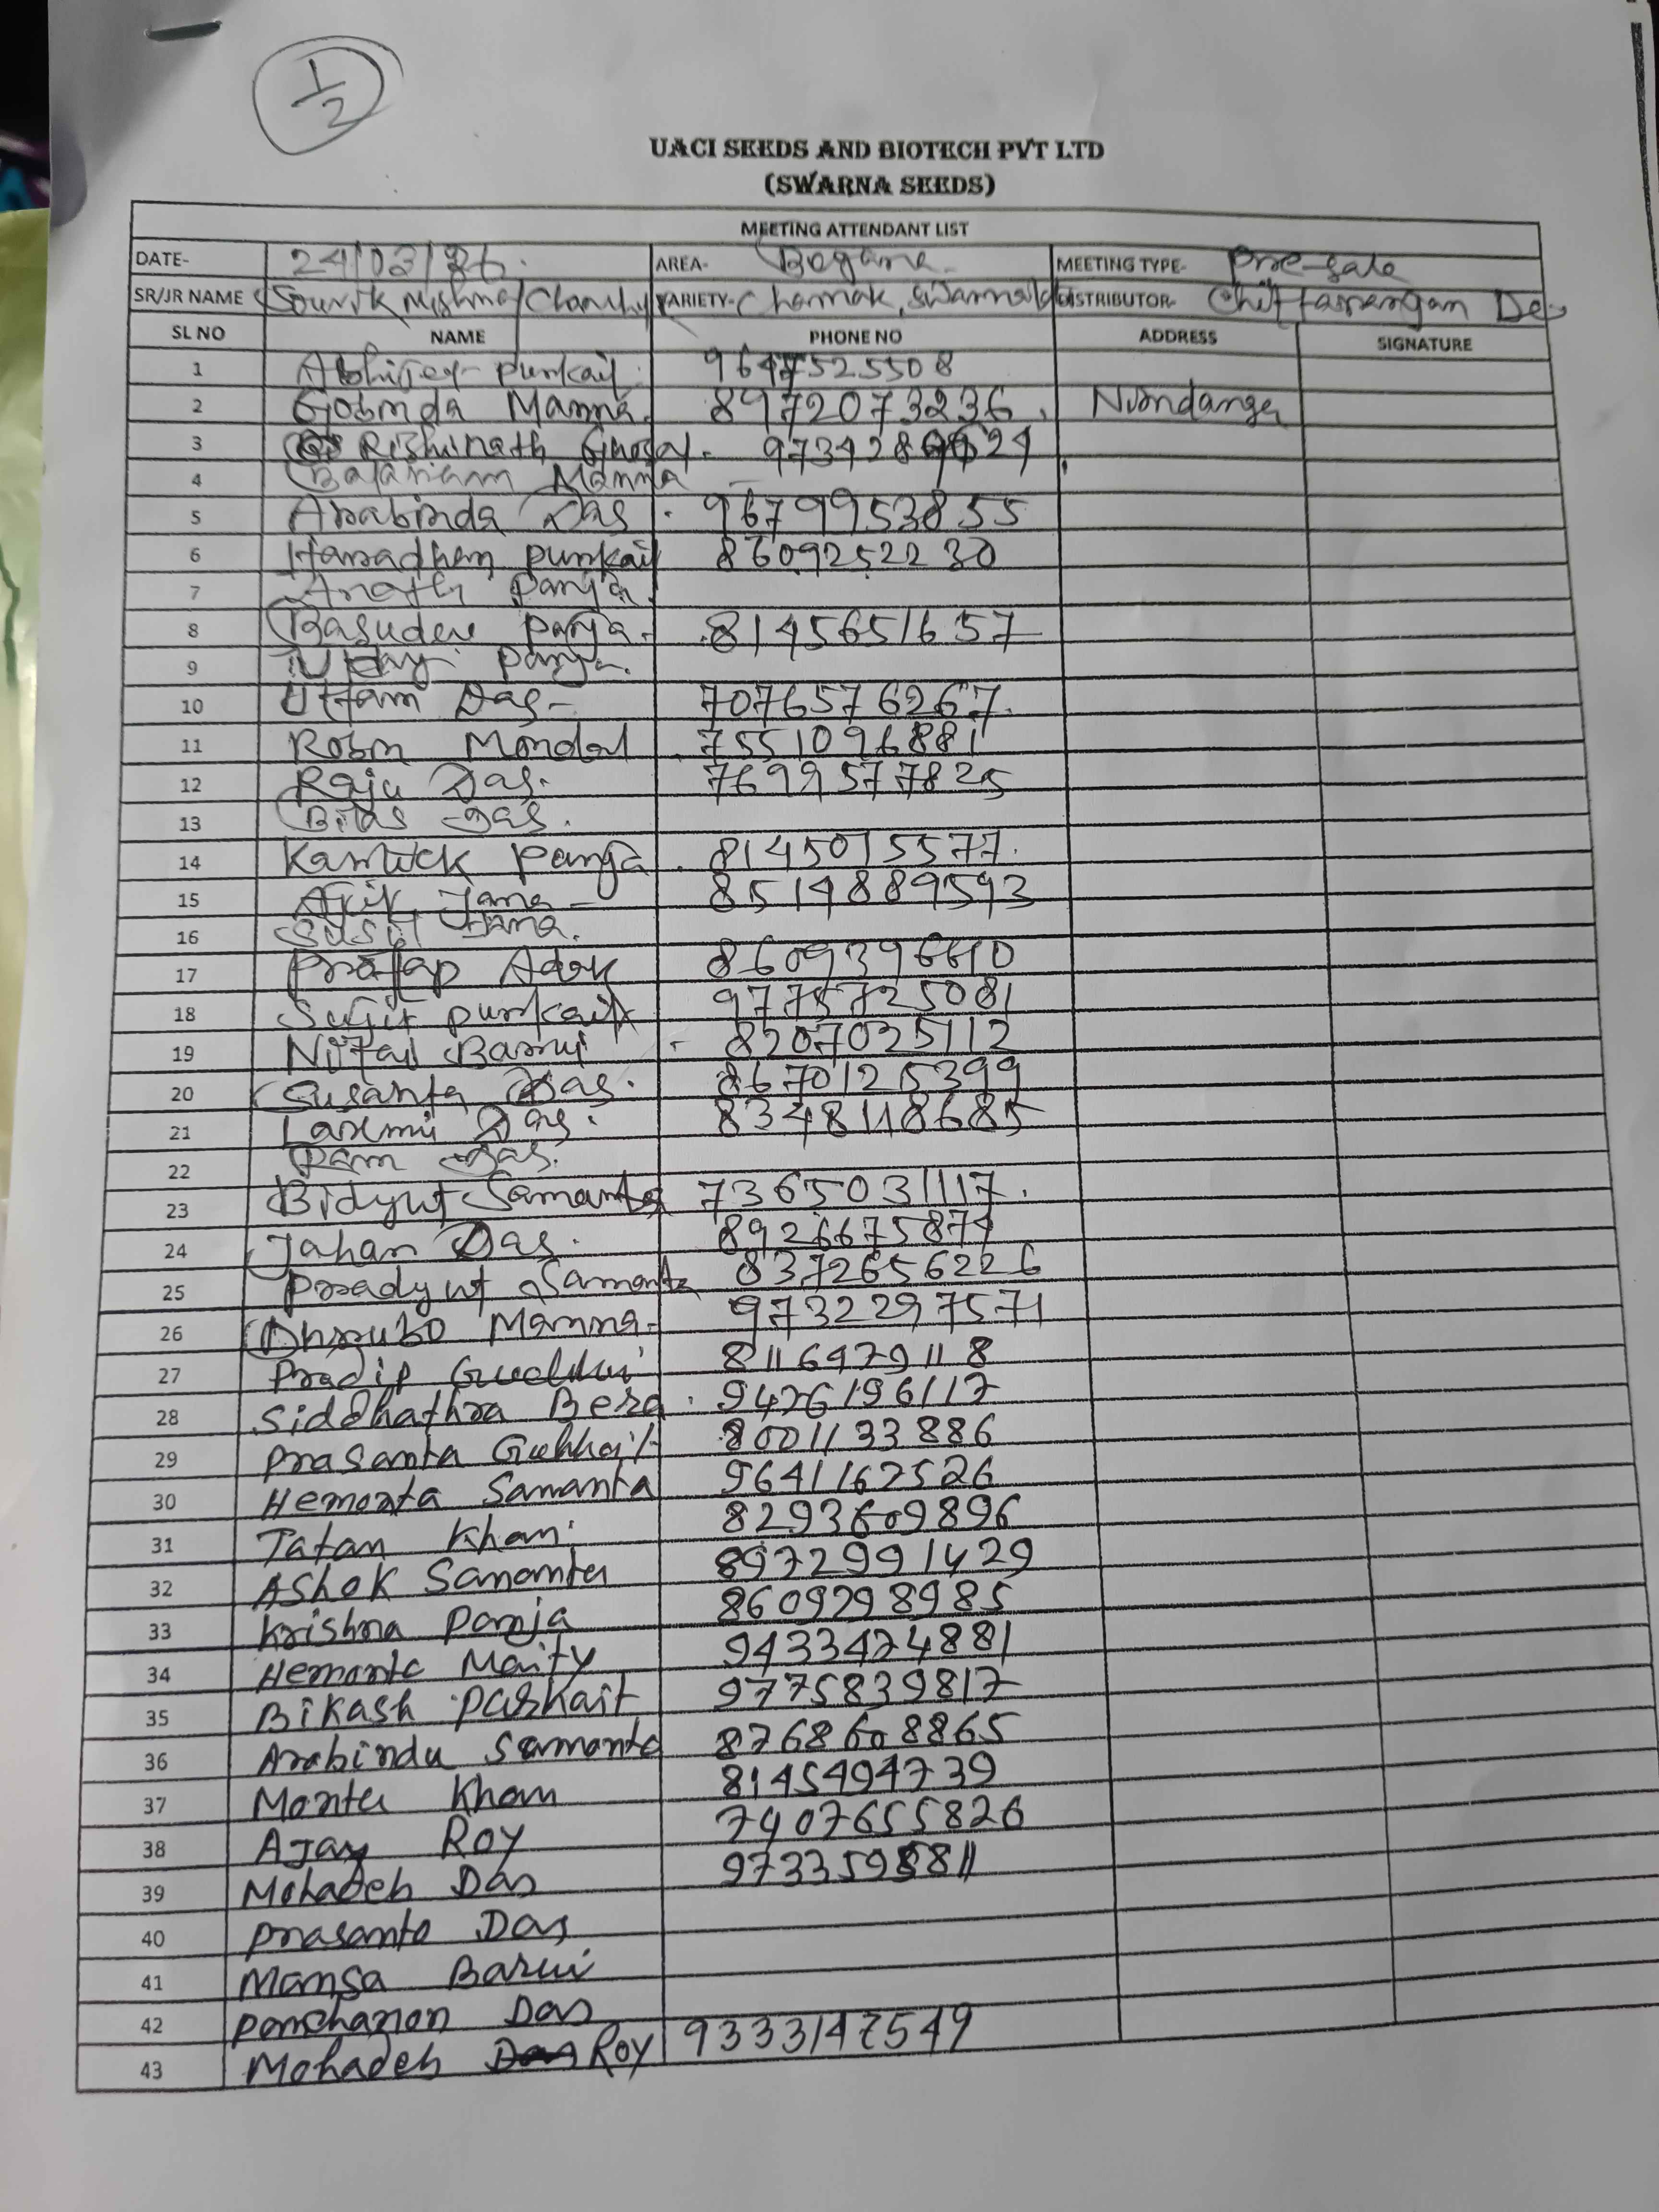 1/2
UACI SEEDS AND BIOTECH PVT LTD
(SWARNA SEEDS)
MEETING ATTENDANT LIST
DATE- 24/03/26. AREA- MEETING TYPE- Pre-sale
SR/JR NAME Sourik VARIETY- Chamak, DISTRIBUTOR- Chittaranjan De
SL NO NAME PHONE NO ADDRESS SIGNATURE
1 Abhijet purkait. 9647525508
2 Gobinda Manna. 8972073236.
3 Rishinath Ghosal-
4 Balaram Manna
5 Arabinda Das. 9679953855
6 Haradhan purkait 8609252230
7 Anath panja.
8 Basudev panja- 8145651657
9 Uday panja.
10 Uttam Das- 7076576267.
11 Robin Mondal 7551096881
12 Raju Das. 7699577825
13 Bilas Das.
14 Kartick panja. 8145015577.
15 Ajit Jana - 8514889593
16 Susil Jana.
17 Pratap Adak
18 Sujit purkait
19 Nitai Barui - 8207025112
20 Susanta Das. 8670125399
21 Laxmi Das. 8348118685
22 Ram Das.
23 Bidyut Samanta 7365031117.
24 Jahan Das. 8926675874
25 Pradyut Samanta 8372656226
26 Dhrubo Manna- 9732297571
27 Pradip 8116479118
28 Siddhathra Bera. 9476196117
29 Prasanta 8001133886
30 Hemonta Samanta 9641162526
31 Tatan Khan 8293609896
32 AShok Samanta 8972991429
33 Krishna Panja 8609298985
34 Hemanta Maity 9433424881
35 Bikash Parkait 9775839817
36 Arabindu Samanta 8768608865
37 Montu Khan 8145494739
38 AJay Roy 7407655826
39 Mohadeb Das
40 Prasanta Das
41 Mansa Barui
42 Panchanon Das
43 Mohadeb Das Roy 9333147549